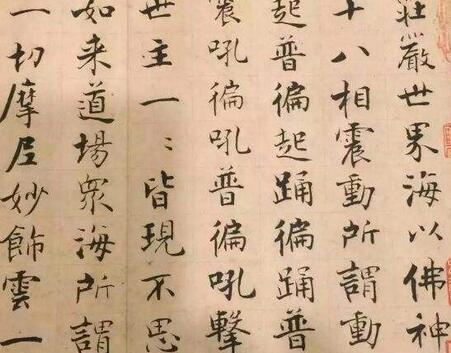 莊嚴世界海以佛神
十八相震動所謂動
起普徧起踊徧踊普
震吼徧吼普徧吼擊
世主一〻皆現不思
如来道場眾海所謂
一切摩尼妙飾雲一